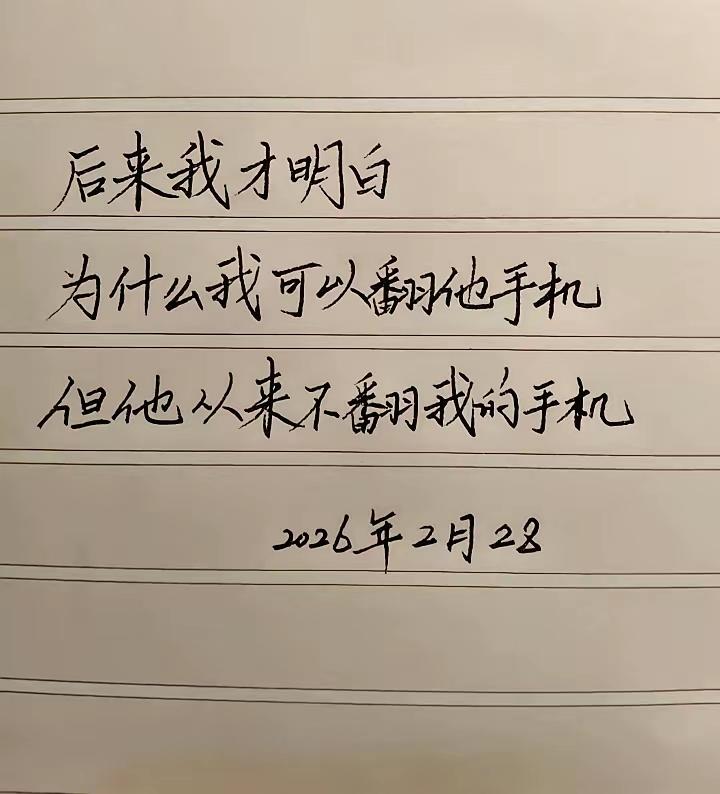 后来我才明白
为什么我可以翻他手机
但他从来不翻我的手机
2026年2月28